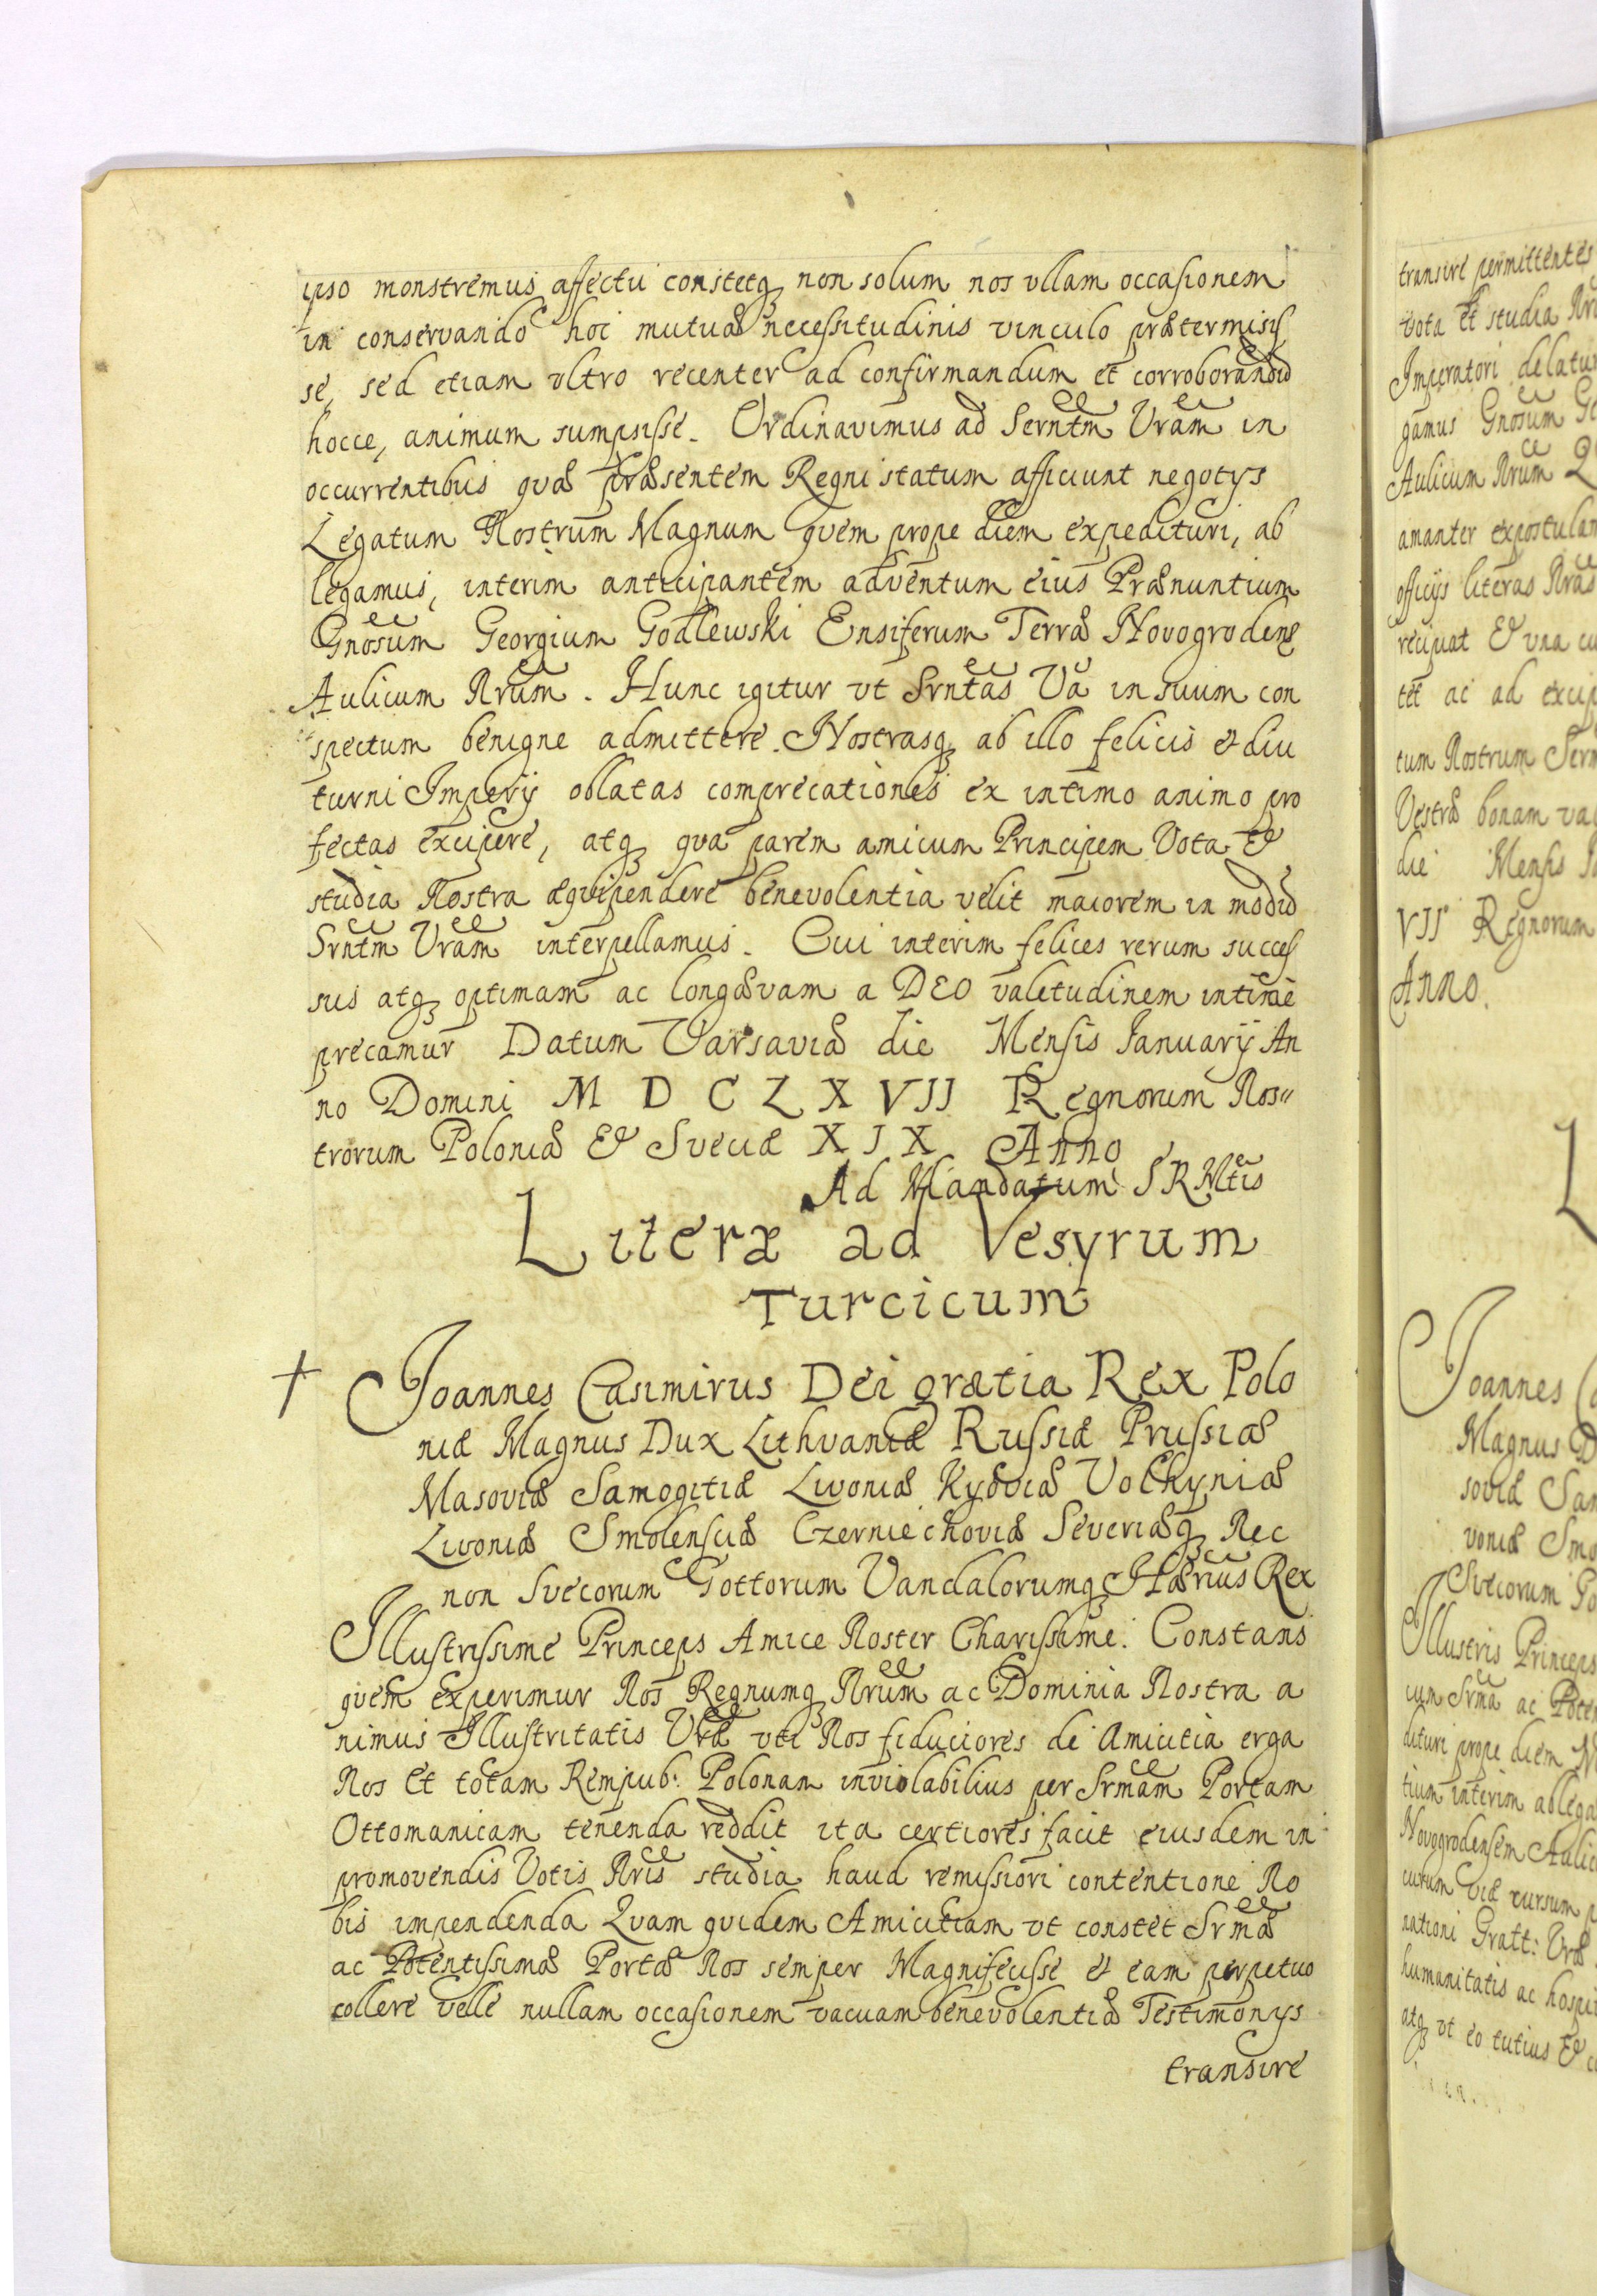 ipso monstremus affectu constetq non solum nos ullam occasionem
in conservando hoc mutuæ necessitudinis vinculo prætermisis
se, sed etiam ultro recenter ad confirmandum et corroborandū
hocce, animum sumpsisse. Ordinavimus ad Serntm Vram in
occurrentibus quæ præsentem Regni statum afficiunt negotys
Legatum Nostrum Magnum quem prope diem expedituri, ab
legamus, interim anticipantem adventum eius Prænuntium
Gnosum Georgium Godlewski Ensiferum Terræ Novogrodens
Aulicum Nrum. Hunc igitur vt Srntas Va in suum con
spectum benigne admittere. Nostrasq ab illo felicis & diu
turni Imperij oblatas comprecationes ex intimo animo pro
fectas excipere, atq qua parem amicum Principem Vota &
studia Nostra æquipendere benevolentia velit maiorem in modū
Srntm Vram interpellamus. Cui interim felices rerum succes
sus atq optimam ac longævam a DEO valetudinem intime
precamur Datum Varsaviæ die Mensis Ianuarij An
no Domini M D C L X VII Regnorum Nos"
trorum Poloniæ & Sveciæ X I X Anno
Ad Mandatum S R Mtis
Literæ ad Vesyrum
Turcicum
+ Joannes Casimirus Dei gratia Rex Polo
niæ Magnus Dux Lithvaniæ Russiæ Prussiæ
Masoviæ Samogitiæ Livoniæ Kyoviæ Volhyniæ
Livoniæ Smolensciæ Czerniechoviæ Severiæq Nec
non Svecorum Gottorum Vandalorumq Hærius Rex
Illustrissime Princeps Amice Noster Charissime. Constans
quem experimur Nos Regnumq Nrum ac Dominia Nostra a
nimus Illustritatis Vræ uti Nos fiduciores de Amicitia erga
Nos Et totam Rempub: Polonam inviolabilius per Srmam Portam
Ottomanicam tenenda reddit ita certiores facit eiusdem in
promovendis Votis Nris studia haud remissiori contentione No
bis impendenda Quam quidem Amicitiam vt constet Srmæ
ac Potentissimæ Portæ Nos semper Magnifecisse & eam perpetuo
collere velle nullam occasionem vacuam benevolentiæ Testimonys
transire
transire permittentes
vota et studia
Imperatori delatur
gamus Gnosum
Aulicum Nrum
amanter
officijs literas Nras
recipiat & vna
tet ac ad
tum Nostrum
Vestræ bonam
die Mensis
VII Regnorum
Anno.
L
Joannes
Magnus
soviæ
voniæ
Svecorum
Illustris Princeps
cum Srma ac
dituri prope diem
tium interim
Novogrodensem
viæ rursum
nationi Vræ
humanitatis ac
atq vt eo tutius &